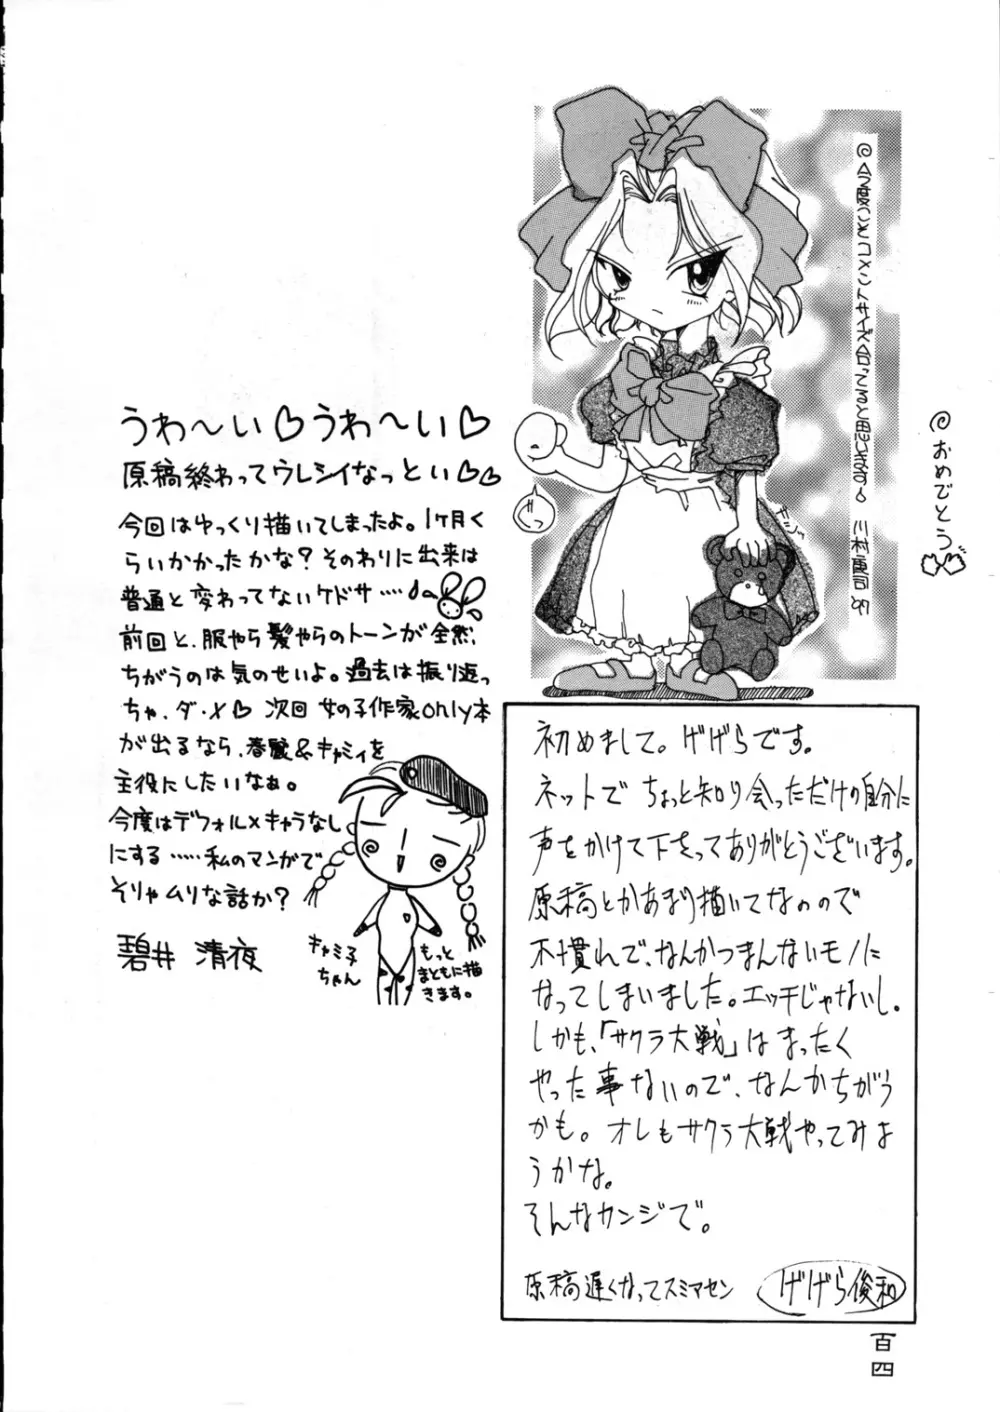 ◎今度こそコメントサイズ合ってると思います。 川村康司 '97
◎おめでとう
うわ〜い♡うわ〜い♡
原稿終わってウレシイなっとい♡♡
今回はゆっくり描いてしまったよ。1ヶ月く
らいかかったかな？そのわりに出来は
普通と変わってないケドサ……
前回と、服やら髪やらのトーンが全然、
ちがうのは気のせいよ。過去は振り返っ
ちゃ、ダ・メ♡ 次回 女の子作家only本
が出るなら、春麗&キャミィを
主役にしたいなぁ。
今度はデフォルメキャラなし
にする……私のマンガで
そりゃムリな話か？
碧井 清夜
キャミ子
ちゃん
もっと
まともに描
きます。
初めまして。げげらです。
ネットで ちょっと知り会っただけの自分に
声をかけて下さってありがとうございます。
原稿とかあまり描いてないので
不慣れで、なんかつまんないモノに
なってしまいました。エッチじゃないし。
しかも、「サクラ大戦」はまったく
やった事ないので、なんかちがう
かも。オレもサクラ大戦やってみよ
うかな。
そんなカンジで。
原稿遅くなってスミマセン
げげら俊和
百四